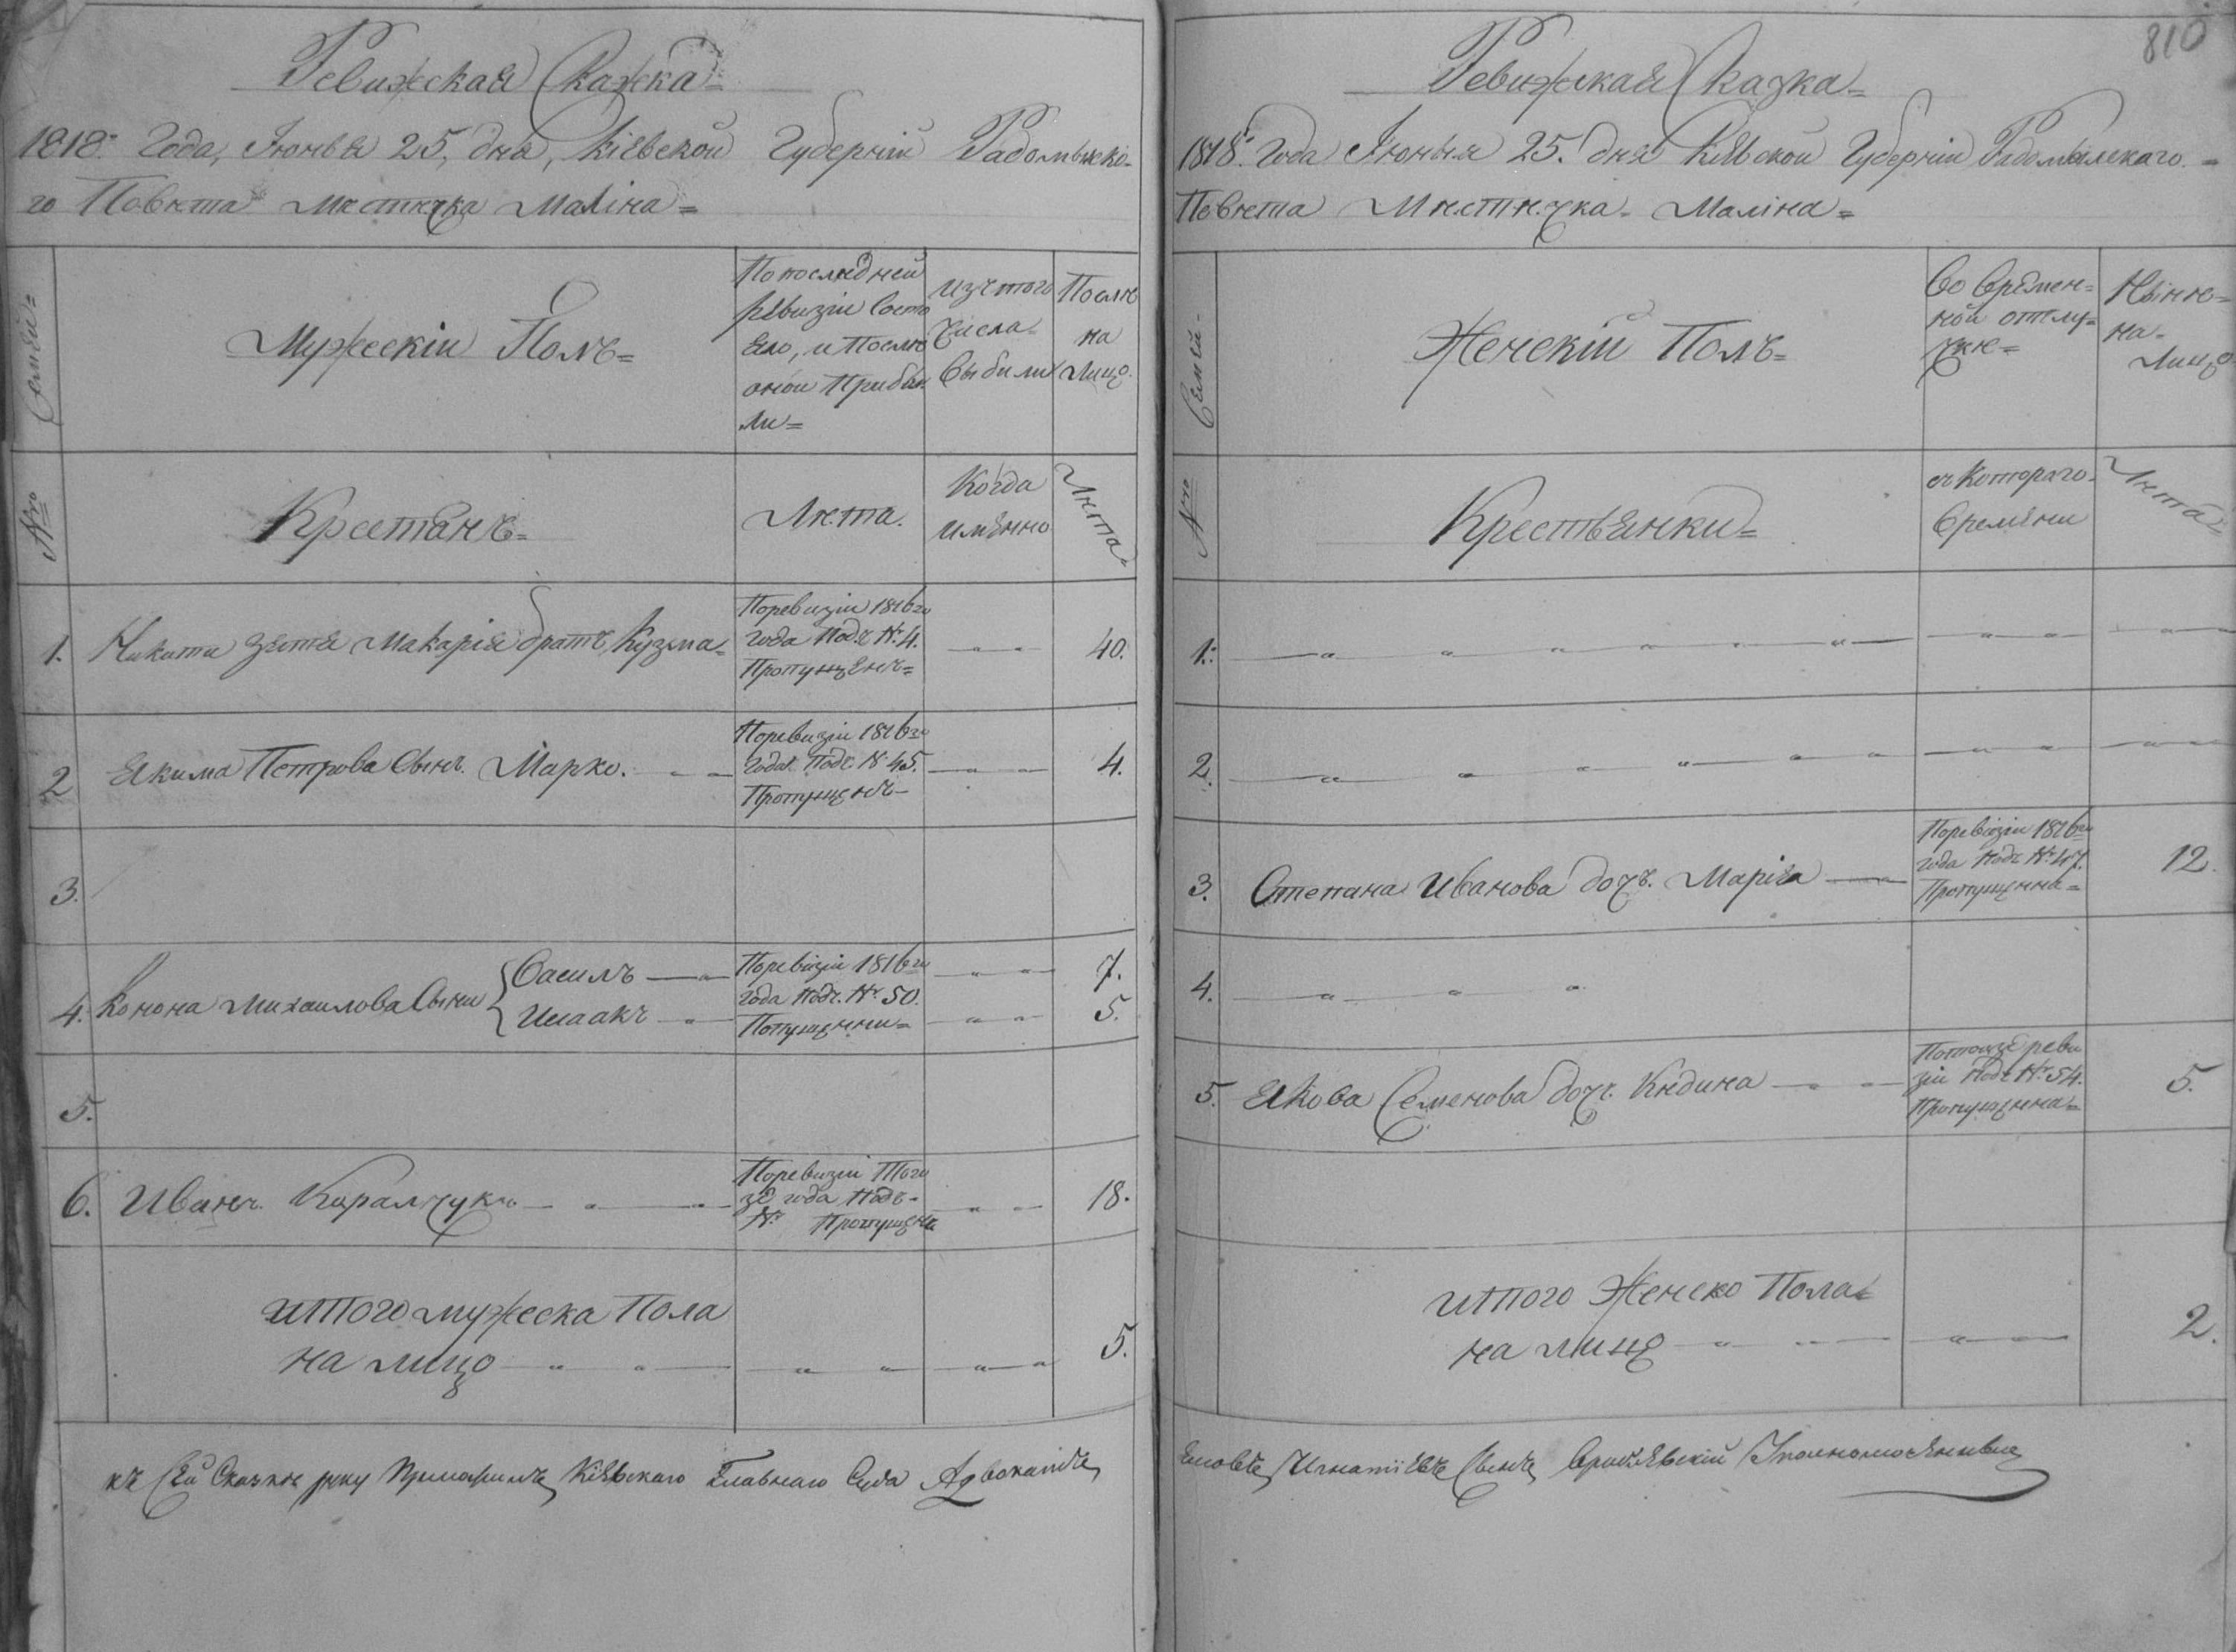 Ревижская Скажка=
1818: Года, Іюньвя 25, дня, Кіевской Губерній Радомыско-
го Повѣта Мѣстѣчка Маліна=
Семьи=
Мужескій Полъ=
По последней
ревизіи Состо
яло, и После
оной Прибы
ли=
Изътого
Числа=
Выбили
После
на
Лицо.
№ро
Крестянъ=
Лѣта.
Когда
имянно
Лѣта
1. Никиты зятя Макарія братъ Кузма=
Поревизіи 1816го
года Подъ №. 4.
Пропущенъ=
40.
2 Якима Петрова Сынъ. Марко.
Поревизіи 1816го
года Подъ. № 45.
Пропущенъ-
4.
3.
4. Конона Михаилова Сыни
Василъ
Исаакъ
Поревізіи 1816го
года Подъ. №. 50.
Попущенни=
7.
5.
5.
6. Иванъ. Каралчукъ
Поревизіи Того
же года Подъ-
№. Пропущенъ
18.
итого мужеска Пола
на лицо
5.
къ Сей Сказкѣ руку Приложилъ Кіевскаго Главнаго Суда Адвокатъ
810
Ревижская Сказка=
1818: Года Іюньля 25. дня Кіевской Губерніи Радомылскаго=
Повѣта Мѣстѣчка Маліна=
Семьи-
Женскій Полъ=
Во времен=
ной отлу=
чке=
Нынѣ=
на-
Лицо
№ро
Крестьянки=
съ Котораго
Времяни
Лѣта=
1.
2.
3. Степана Иванова дочъ. Марія
Поревізіи 1816го
года Подъ №. 47.
Пропущенна=
12.
4.
5. Якова Семенова дочъ. Кидина
Потойже реви
зіи Подъ №. 54.
Пропущенна=
5.
итого Женско Пола=
на лицо
2.
Игнатіевъ Сынъ